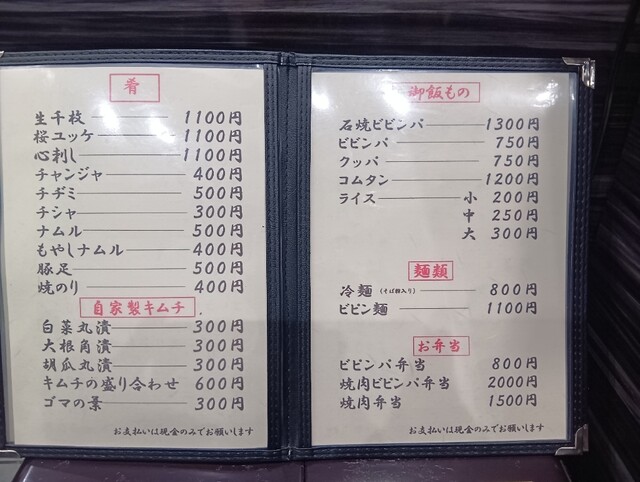 肴
生千枚 1100円
桜ユッケ 1100円
心刺し 1100円
チャンジャ 400円
チヂミ 500円
チシャ 300円
ナムル 500円
もやしナムル 400円
豚足 500円
焼のり 400円
自家製キムチ
白菜丸漬 300円
大根角漬 300円
胡瓜丸漬 300円
キムチの盛り合わせ 600円
ゴマの葉 300円
お支払いは現金のみでお願いします
御飯もの
石焼ビビンバ 1300円
ビビンバ 750円
クッパ 750円
コムタン 1200円
ライス 小 200円
中 250円
大 300円
麺類
冷麺 (そば粉入り) 800円
ビビン麺 1100円
お弁当
ビビンバ弁当 800円
焼肉ビビンバ弁当 2000円
焼肉弁当 1500円
お支払いは現金のみでお願いします